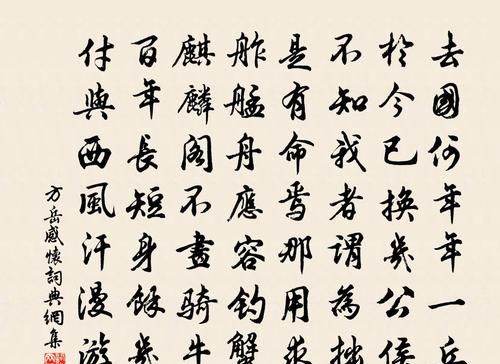 去國何年年一丘
於今已換幾公侯
不知我者謂為拙
是有命焉那用求
舴艋舟應容釣蟹
麒麟閣不畫騎牛
百年長短身餘幾
付與西風汗漫游
方岳感懷詞典網集